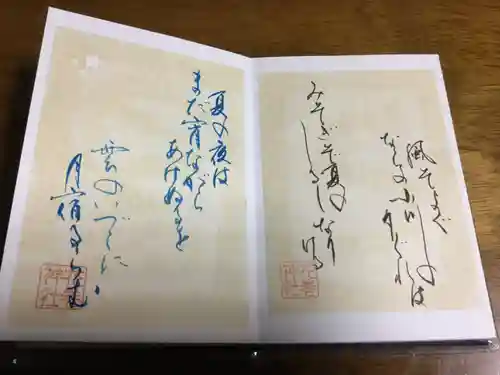 風そよぐ
ならの小川の
夕ぐれは
みそぎぞ夏の
しるしなり
ける
夏の夜は
まだ宵ながら
あけぬるを
雲のいづこに
月
宿るらむ